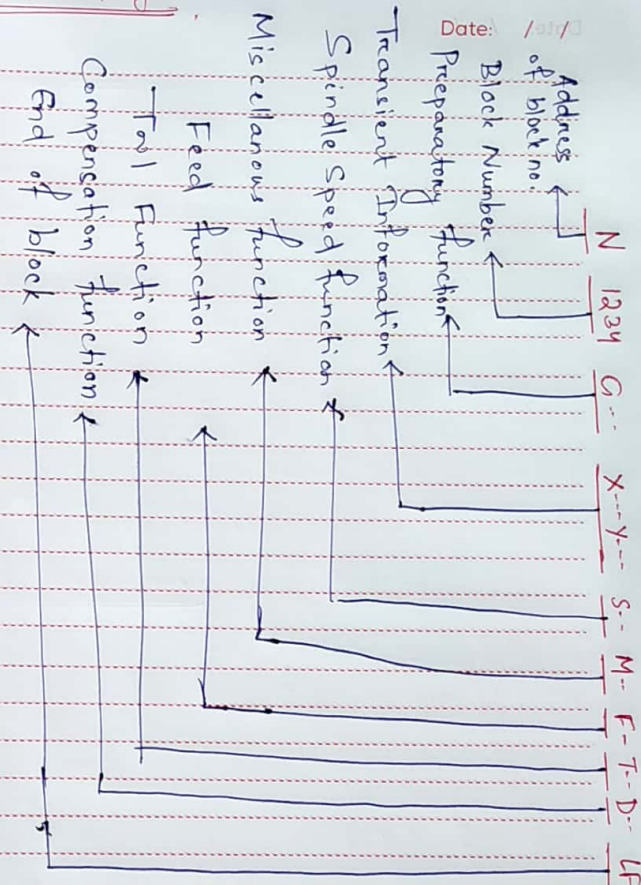 Date: / /
N 1234 G-- X---Y--- S-- M-- F- T-- D-- LF
Address
of block no.
Block Number
Preparatory function
Transient Information
Spindle Speed function
Miscellanous function
Feed function
Tool Function
Compensation function
End of block